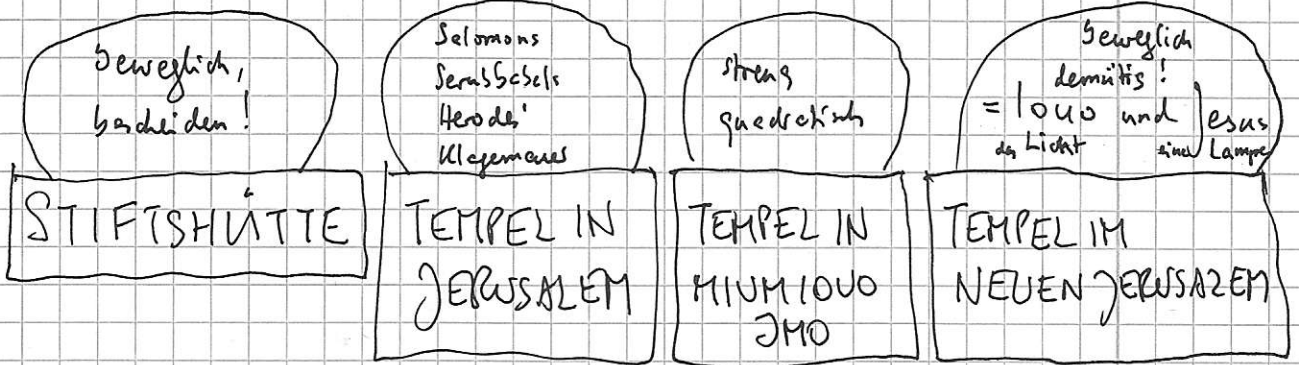 beweglich,
bescheiden!
STIFTSHÜTTE
Salomons
Serubbabels
Herodes'
Klagemauer
TEMPEL IN
JERUSALEM
streng
quadratisch
TEMPEL IN
beweglich
demütig!
= IOUO und Jesus
das Licht eine Lampe
TEMPEL IM
NEUEN JERUSALEM